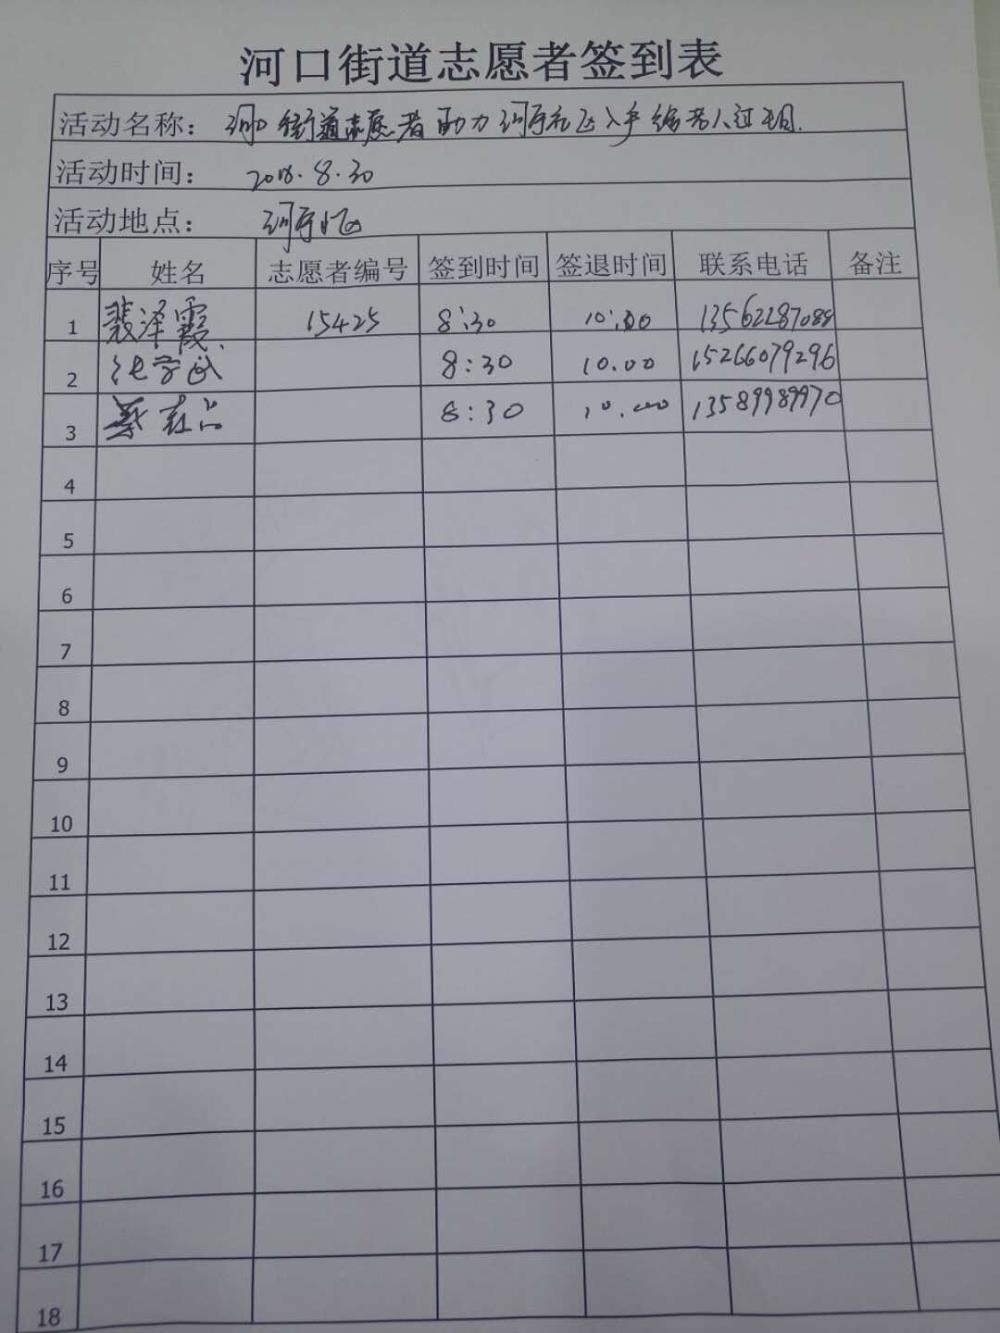 河口街道志愿者签到表
活动名称： 河口街道志愿者助力河 社区入户 老人过
活动时间： 2018.8.30
活动地点： 河 社区
序号 姓名 志愿者编号 签到时间 签退时间 联系电话 备注
1 裴泽霞 15425 8:30 10:00 13562287088
2 8:30 10.00 15266079296
3 8:30 10.00 13589989970
4
5
6
7
8
9
10
11
12
13
14
15
16
17
18